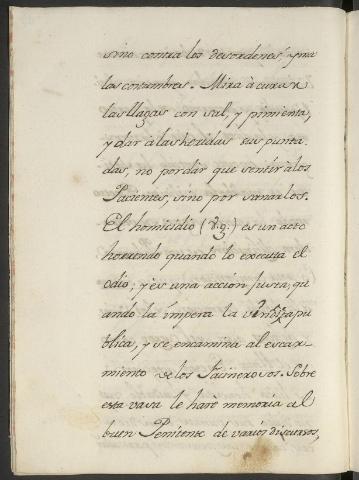 sino contra los desordenes, y ma
las costumbres. Mira à curar
las llagas con sal, y pimienta,
y dar à las heridas sus punta
das, no por dar que sentir à los
Pacientes, sino por sanarlos.
El homicidio (v.g.) es un acto
horrendo quando lo executa el
odio; y es una acción justa, qu
ando la impera la vindicta pu
blica, y se encamina al escar
miento de los Facinerosos. Sobre
esta vasa le haré memoria al
buen Penitente de varios discursos,